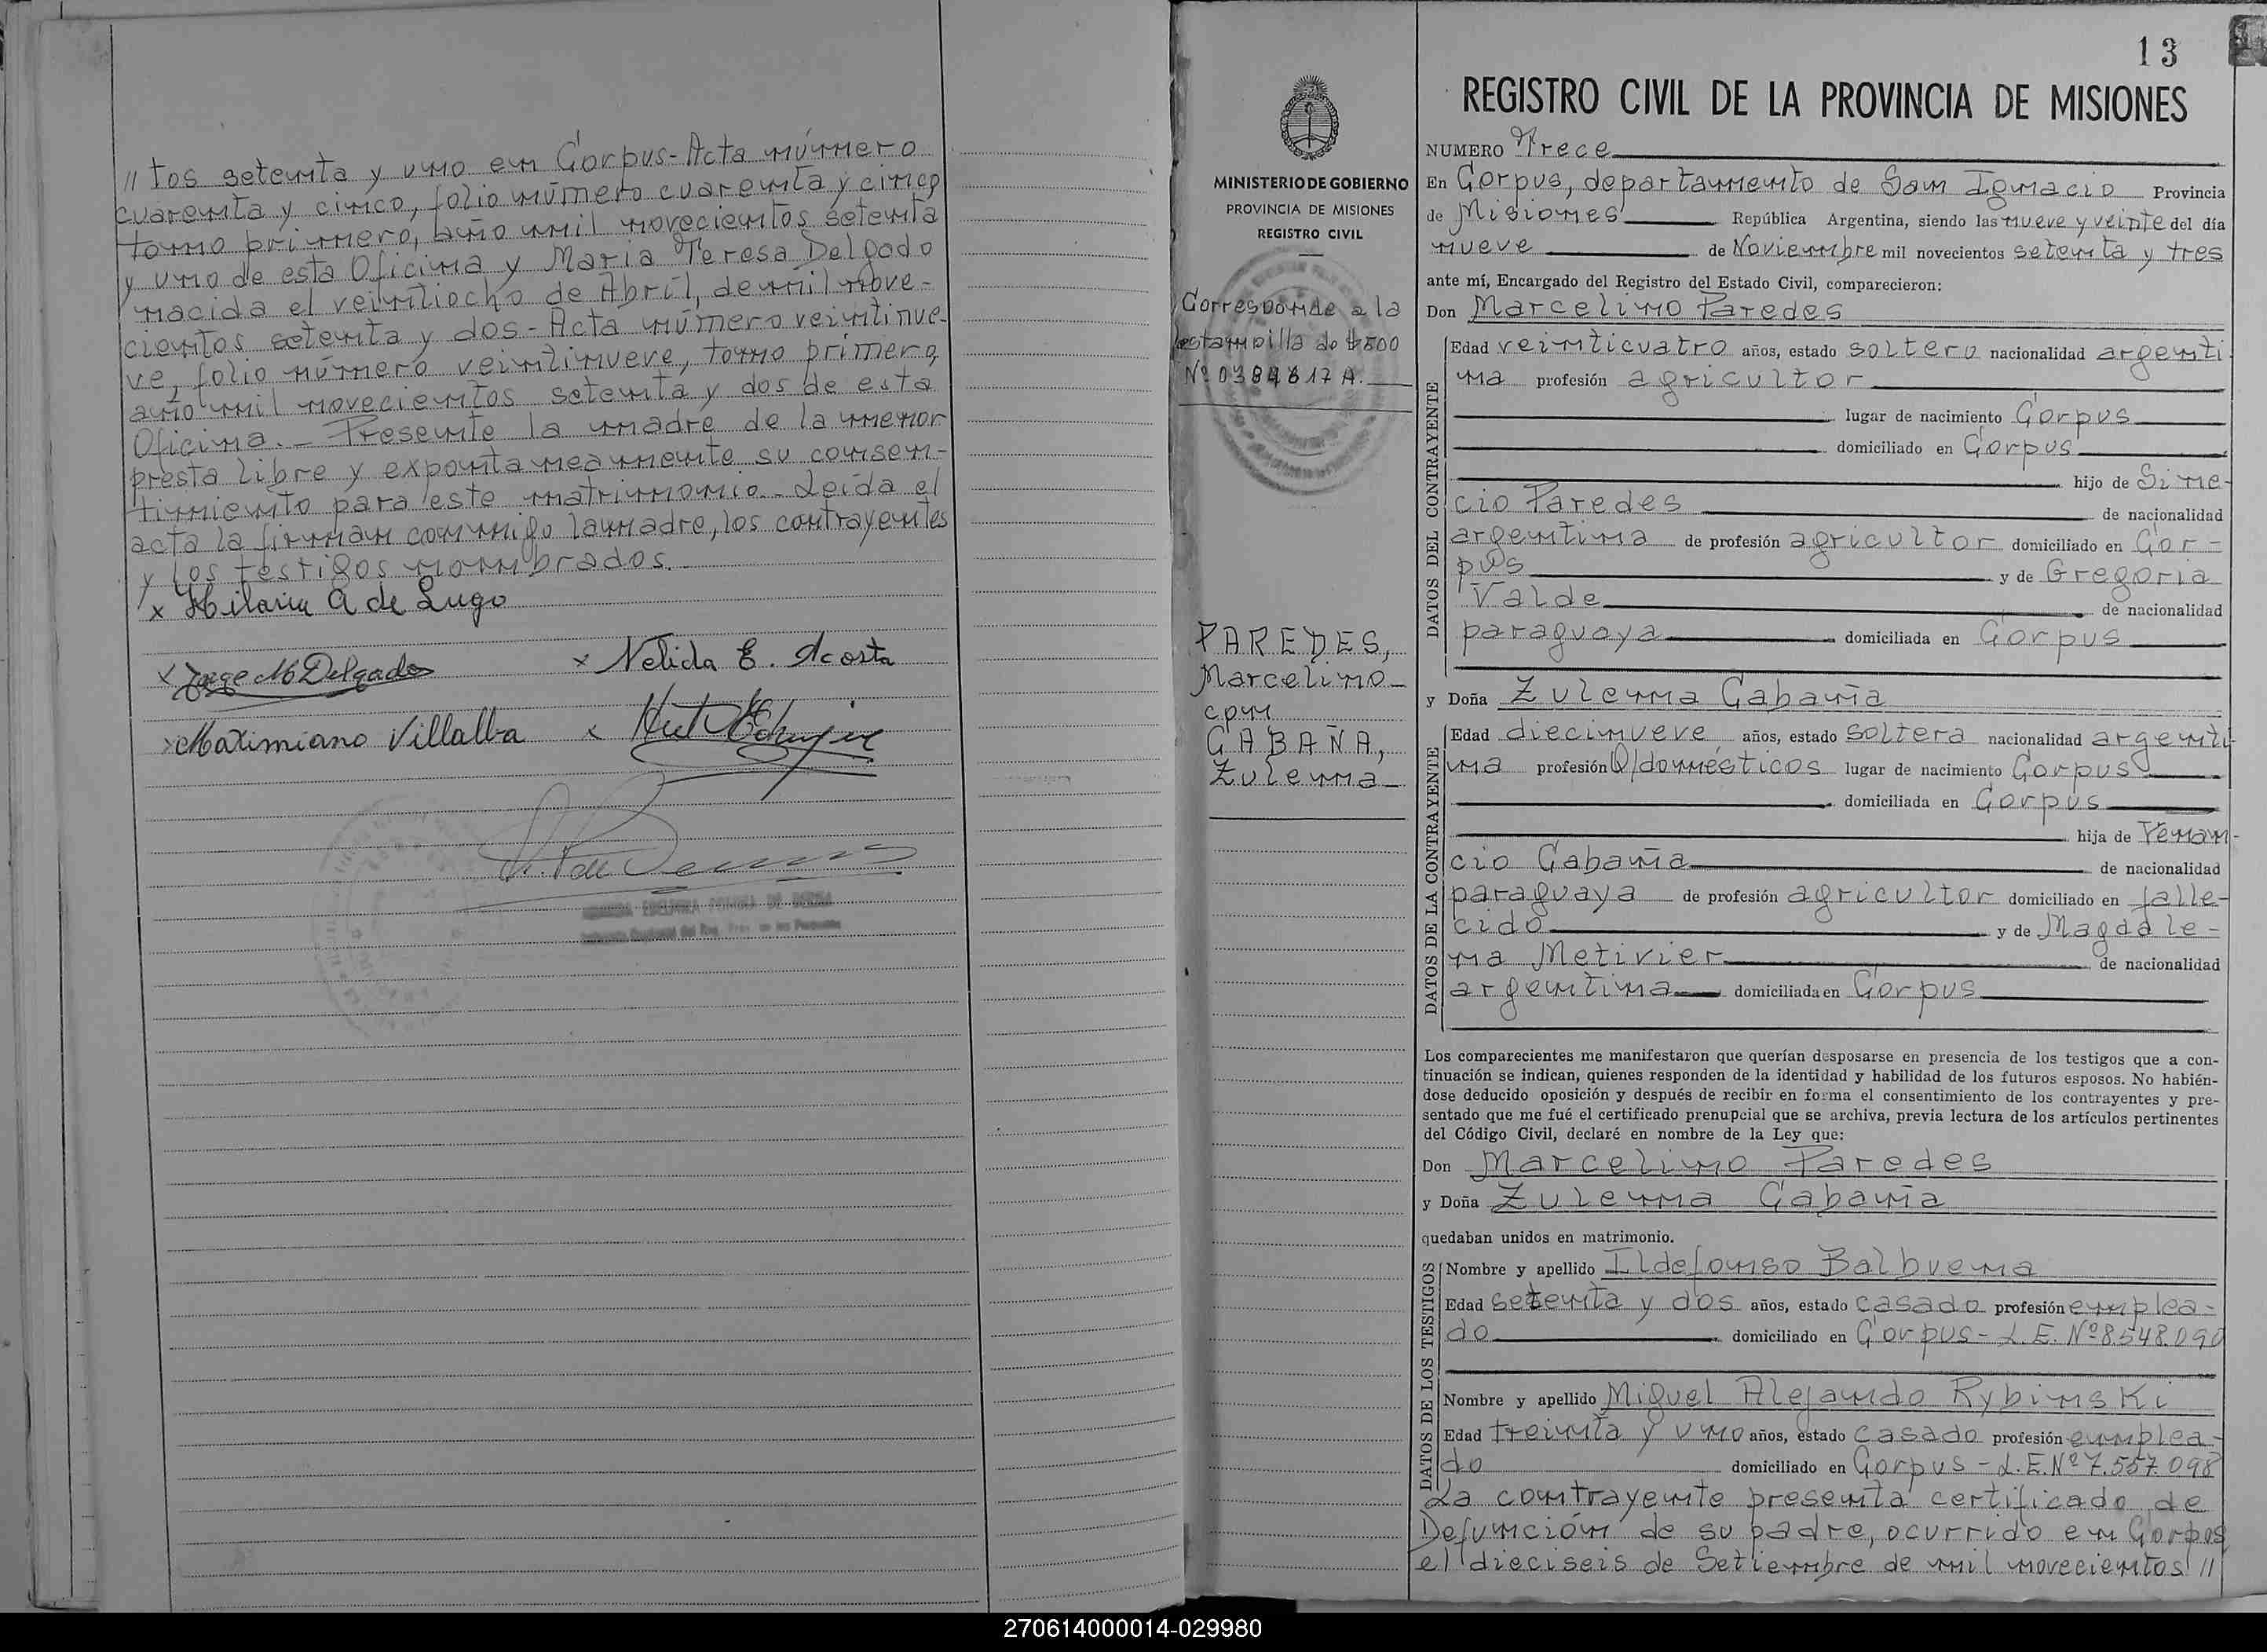 // tos setenta y uno en Corpus - Acta número
cuarenta y cinco, folio número cuarenta y cinco,
tomo primero, año mil novecientos setenta
y uno de esta Oficina y Maria Teresa Delgado
nacida el veintiocho de Abril, de mil nove-
cientos setenta y dos - Acta número veintinue-
ve, folio número veintinueve, tomo primero,
año mil novecientos setenta y dos de esta
Oficina. - Presente la madre de la menor
presta libre y expontaneamente su consen-
timiento para este matrimonio - Leída el
acta la firman conmigo la madre, los contrayentes
y los testigos nombrados.
x Hilaria A de Lugo
x Jorge M Delgado x Nelida E. Acosta
x Maximiano Villalba x
13
REGISTRO CIVIL DE LA PROVINCIA DE MISIONES
MINISTERIO DE GOBIERNO
PROVINCIA DE MISIONES
REGISTRO CIVIL
Corresponde a la
estampilla de $800
Nº 0384817 A.
PAREDES,
Marcelino
con
GABAÑA,
Zulema
NUMERO Trece
En Corpus, departamento de San Ignacio Provincia
de Misiones República Argentina, siendo las nueve y veinte del día
nueve de Noviembre mil novecientos setenta y tres
ante mí, Encargado del Registro del Estado Civil, comparecieron:
Don Marcelino Paredes
DATOS DEL CONTRAYENTE
Edad veinticuatro años, estado soltero nacionalidad argenti
na profesión agricultor
lugar de nacimiento Corpus
domiciliado en Corpus
hijo de Sine-
cio Paredes de nacionalidad
argentina de profesión agricultor domiciliado en Cor-
pus y de Gregoria
Valde de nacionalidad
paraguaya domiciliada en Corpus
y Doña Zulema Gabaña
DATOS DE LA CONTRAYENTE
Edad diecinueve años, estado soltera nacionalidad argenti
na profesión Q/domésticos lugar de nacimiento Corpus
domiciliada en Corpus
hija de Venan-
cio Gabaña de nacionalidad
paraguaya de profesión agricultor domiciliado en falle-
cido y de Magdale-
na Metivier de nacionalidad
argentina domiciliada en Corpus
Los comparecientes me manifestaron que querían desposarse en presencia de los testigos que a con-
tinuación se indican, quienes responden de la identidad y habilidad de los futuros esposos. No habién-
dose deducido oposición y después de recibir en forma el consentimiento de los contrayentes y pre-
sentado que me fué el certificado prenupcial que se archiva, previa lectura de los artículos pertinentes
del Código Civil, declaré en nombre de la Ley que:
Don Marcelino Paredes
y Doña Zulema Gabaña
quedaban unidos en matrimonio.
DATOS DE LOS TESTIGOS
Nombre y apellido Ildefonso Balbuena
Edad setenta y dos años, estado casado profesión emplea-
do domiciliado en Corpus - L.E. Nº 8.548.090
Nombre y apellido Miguel Alejando Rybinski
Edad treinta y uno años, estado casado profesión emplea-
do domiciliado en Corpus - L.E. Nº 7.557.098
La contrayente presenta certificado de
Defunción de su padre, ocurrido en Corpus
el dieciseis de Setiembre de mil novecientos //
270614000014-029980